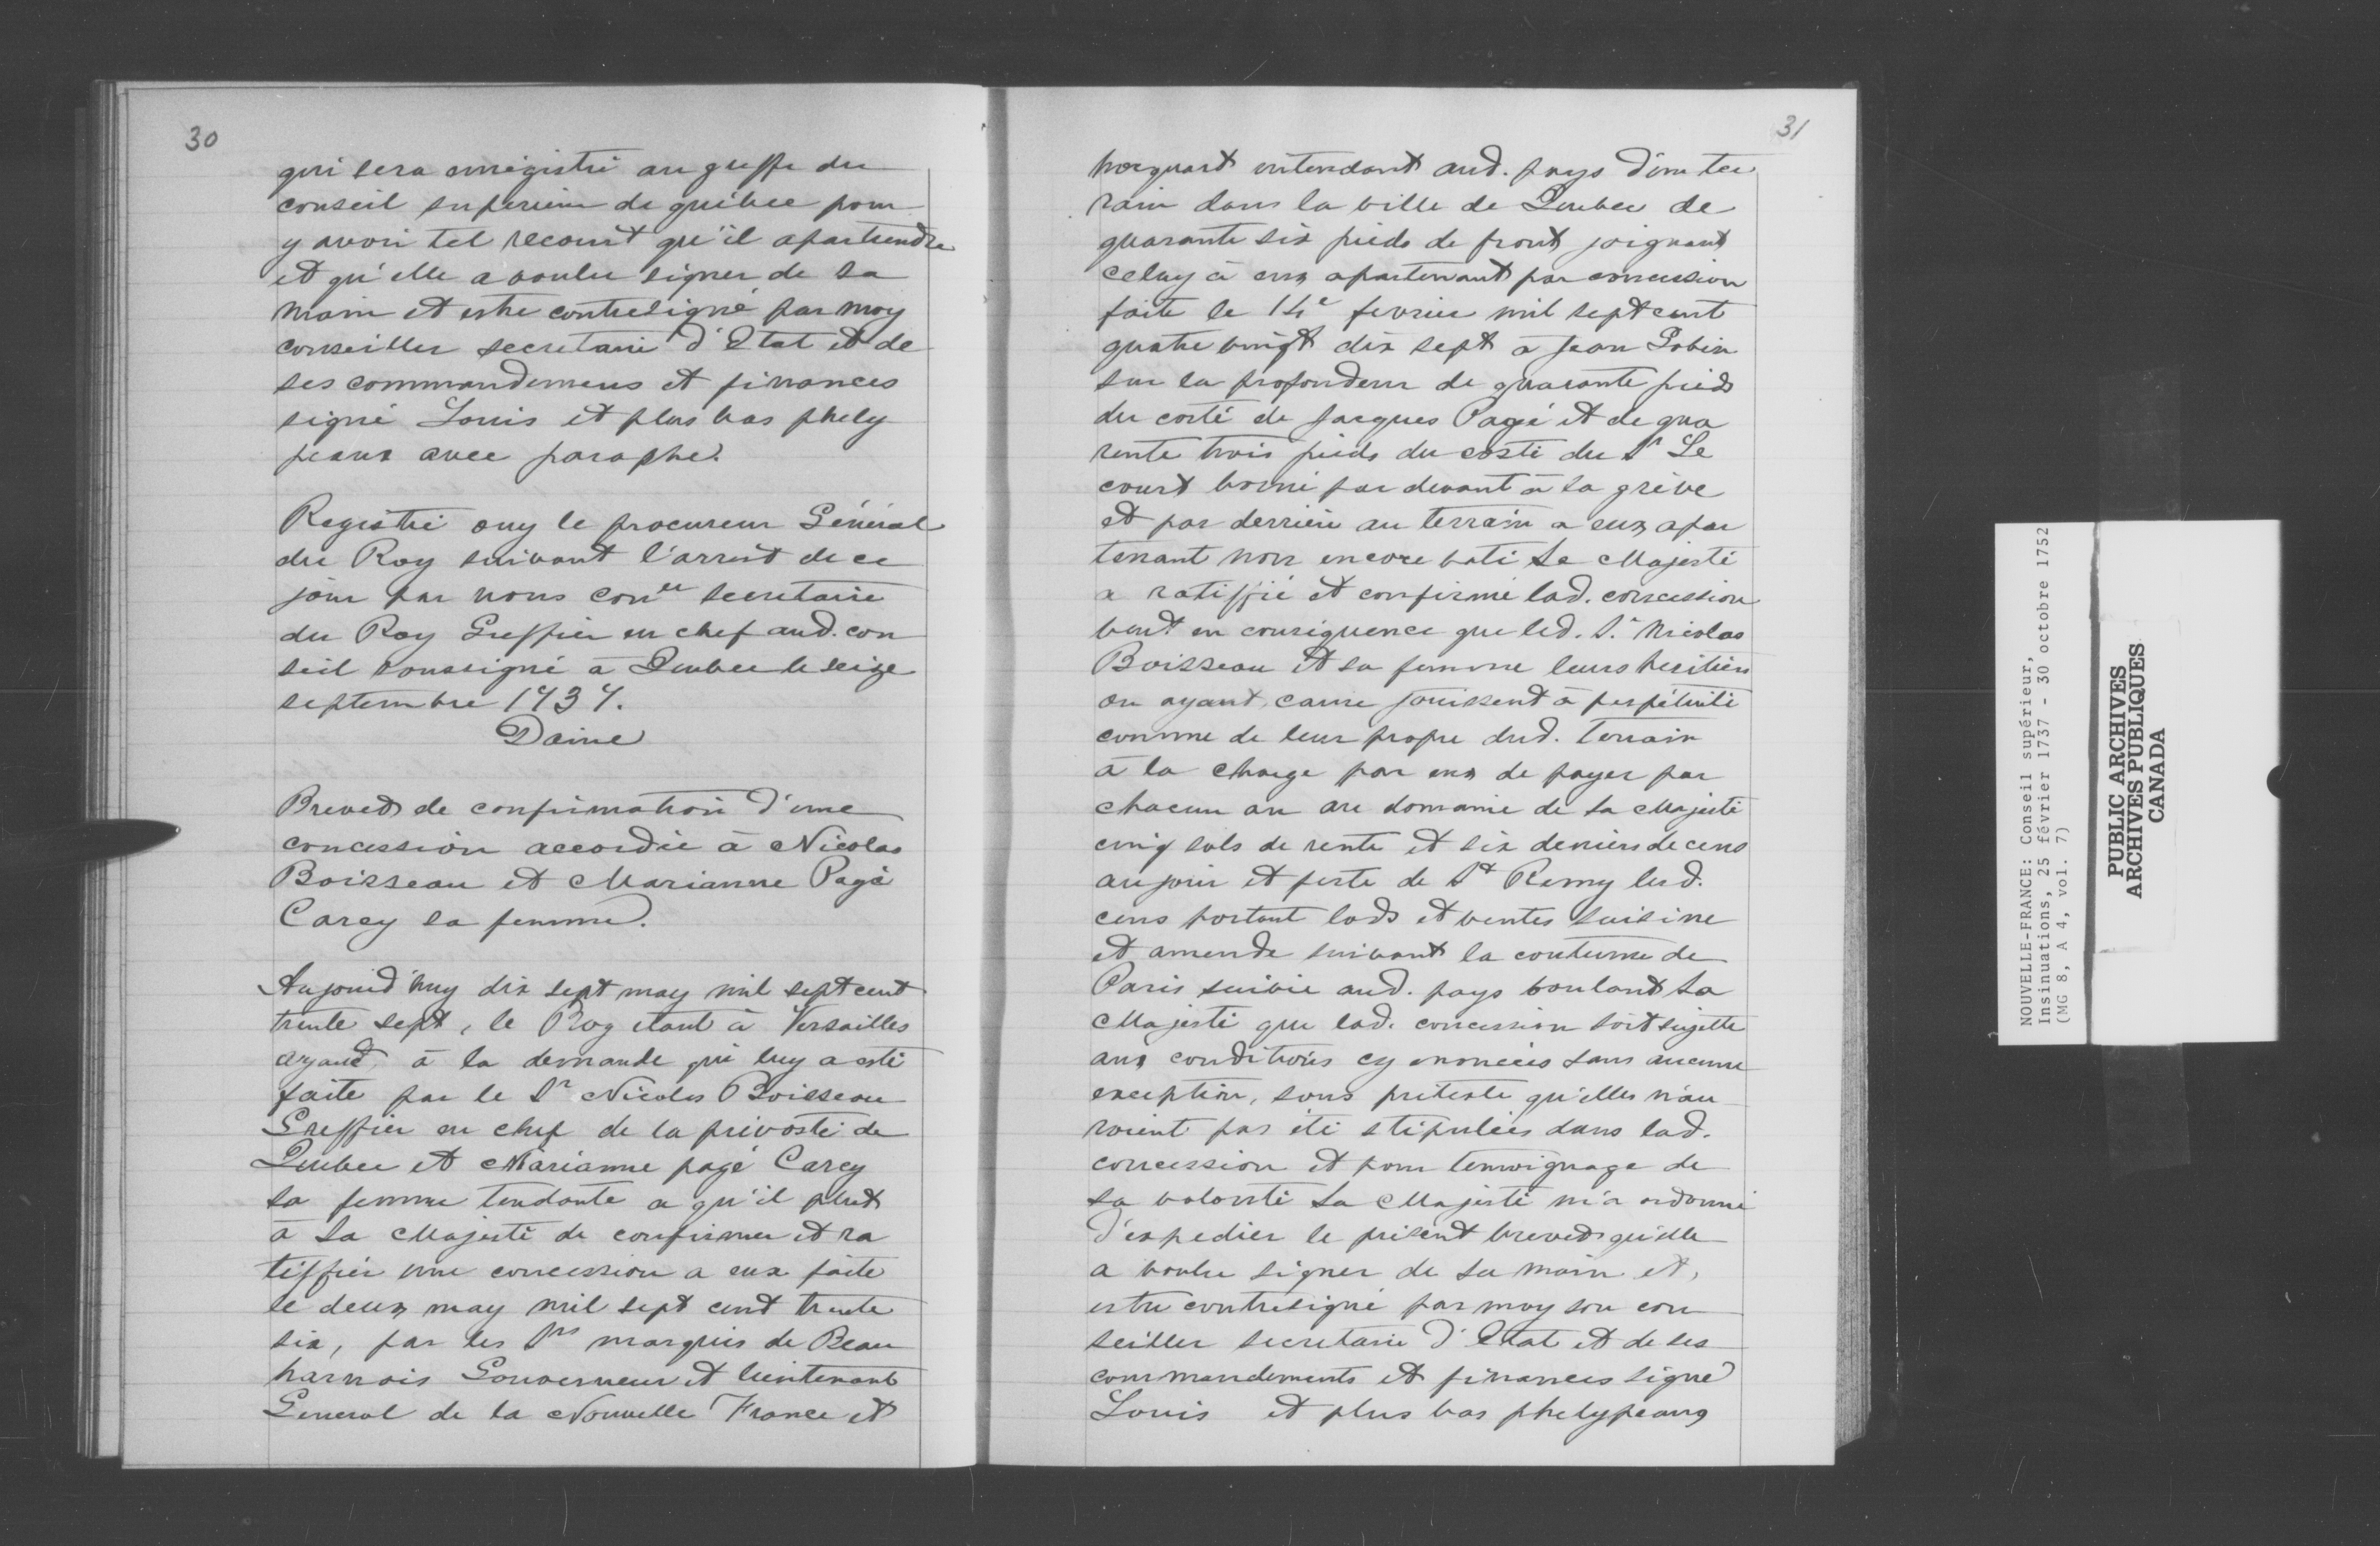 30
qui sera enregistré au greffe du
conseil superieur de quebec pour
y avoir tel recourt qu'il apartiendra
et qu'elle a voulu signer de sa
main et estre contresigné par moy
conseiller secretaire d'Etat et de
ses commandemens et finances
signé Louis et plus bas phely
peaux avec paraphe.
Registré ouy le procureur Général
du Roy suivant l'arrest de ce
jour par nous coner secretaire
du Roy Greffier en chef aud. con
seil soussigné à Quebec le seize
septembre 1737.
Daine
Brevet de confirmation d'une
concession accordée à Nicolas
Boisseau et Marianne Pagé
Carcy sa femme.
Aujourd'huy dix sept may mil sept cent
trente sept, le Roy etant à Versailles
ayant, à la demande qui luy a esté
faite par le Sr Nicolas Boisseau
Greffier en chef de la prévosté de
Quebec et Marianne pagé Carcy
sa femme tendante a qu'il plut
à Sa Majesté de confirmer et ra
tiffier une concession a eux faite
le deux may mil sept cent trente
six, par les Srs marquis de Beau
harnois Gouverneur et lieutenant
General de la Nouvelle France et
31
hocquart intendant aud. pays d'un ter
rain dans la ville de Quebec de
quarante six pieds de front joignant
celuy à eux apartenant par concession
faite le 14e fevrier mil sept cent
quatre vingt dix sept à Jean Gobin
sur la profondeur de quarante pieds
du costé de Jacques Pagé et de qua
rente trois pieds du costé du Sr Le
court borné par devant à la grève
et par derrière au terrain a eux apar
tenant non encore bati Sa Majesté
a ratiffié et confirmé lad. concession
veut en consequence que led. Sr Nicolas
Boisseau et sa femme leurs heritiers
ou ayant cause jouissent à perpétuité
comme de leur propre dud. terrain
à la charge par eux de payer par
chacun an au domaine de Sa Majesté
cinq sols de rente et six deniers de cens
au jour et feste de St Remy lesd.
cens portant lods et ventes saisine
et amende suivant la coutume de
Paris suivie aud. pays voulant Sa
Majesté que lad. concession soit sujette
aux conditions cy enoncées sans aucune
exception, sous pretexte qu'elles n'au
roient pas été stipulées dans lad.
concession et pour temoignage de
sa volonté Sa Majesté m'a ordonné
d'expedier le présent brevet qu'elle
a voulu signer de sa main et,
estre contresigné par moy son con
seiller secretaire d'Etat et de ses
commandements et finances signé
Louis et plus bas phelypeaux
NOUVELLE-FRANCE: Conseil supérieur,
Insinuations, 25 février 1737 - 30 octobre 1752
(MG 8, A 4, vol. 7)
PUBLIC ARCHIVES
ARCHIVES PUBLIQUES
CANADA